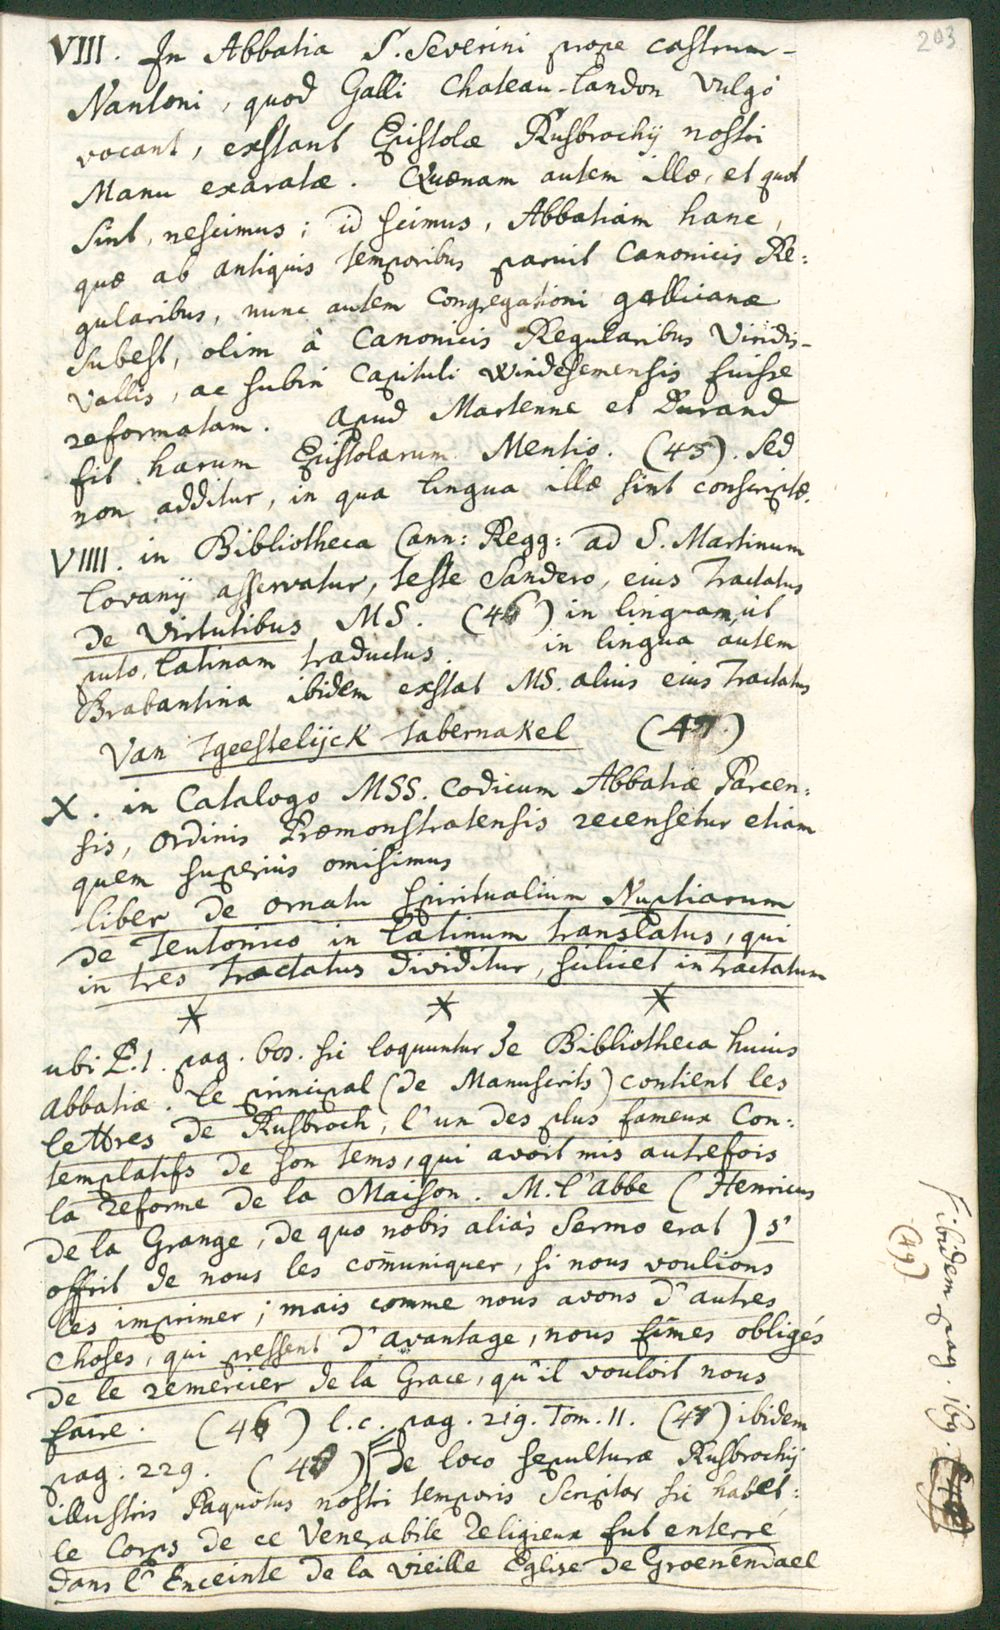 203
VIII. In Abbatia S. Severini prope castrum-
Nantoni, quod Galli Chateau-Landon vulgò
vocant, exstant Epistolæ Rusbrochij nostri
Manu exaratæ. Quænam autem illæ, et quot
sint, nescimus; id scimus, Abbatiam hanc,
quæ ab antiquis temporibus paruit Canonicis Re:
gularibus, nunc autem Congregationi gallicanæ
subest, olim à Canonicis Regularibus Viridis-
vallis, ac subin Capituli Windesemensis fuisse
reformatam. Apud Martenne et Durand
fit harum Epistolarum Mentio. (45). Sed
non additur, in qua lingua illæ sint conscriptæ.
VIIII. in Bibliotheca Cann: Regg: ad S. Martinum
Lovanij asservatur, teste Sandero, eius Tractatus
de Virtutibus MS. (46) in linguam, ut
puto, latinam traductus. in lingua autem
Brabantina ibidem exstat MS. alius eius Tractatus
Van tgeestelijck tabernakel (47.)
X. in Catalogo MSS. Codicum Abbatiæ Parcen:
sis, ordinis Præmonstratensis recensetur etiam
quem superiùs omisimus
liber de ornatu spiritualium Nuptiarum
de Teutonico in Latinum translatus, qui
in tres tractatus dividitur, scilicet in tractatum
* * *
ubi P. 1. pag. 60s. sic loquuntur de Bibliotheca huius
abbatiæ. le principal (de Manuscrits) contient les
lettres de Rusbroch, l'un des plus fameux Con:
templatifs de son tems, qui avoit mis autrefois
la reforme de la Maison. M. l'abbe (Henricus
de la Grange, de quo nobis aliàs Sermo erat) s'
offrit de nous les com̄uniquer, si nous voulions
les imprimer; mais comme nous avons d'autres
choses, qui pressent d'avantage, nous fûmes obligés
de le remercier de la Grace, qu'il vouloit nous
faire. (46) l. c. pag. 219. Tom. II. (47) ibidem
pag. 229. (48) De loco sepulturæ Rusbrochij
illustris Paquotus nostri temporis Scriptor sic habet:
le Corps de ce Venerabile Religieux fut enterré
dans l'Enceinte de la vieille Eglise de Groenendael
ibidem pag. 169.
(49)